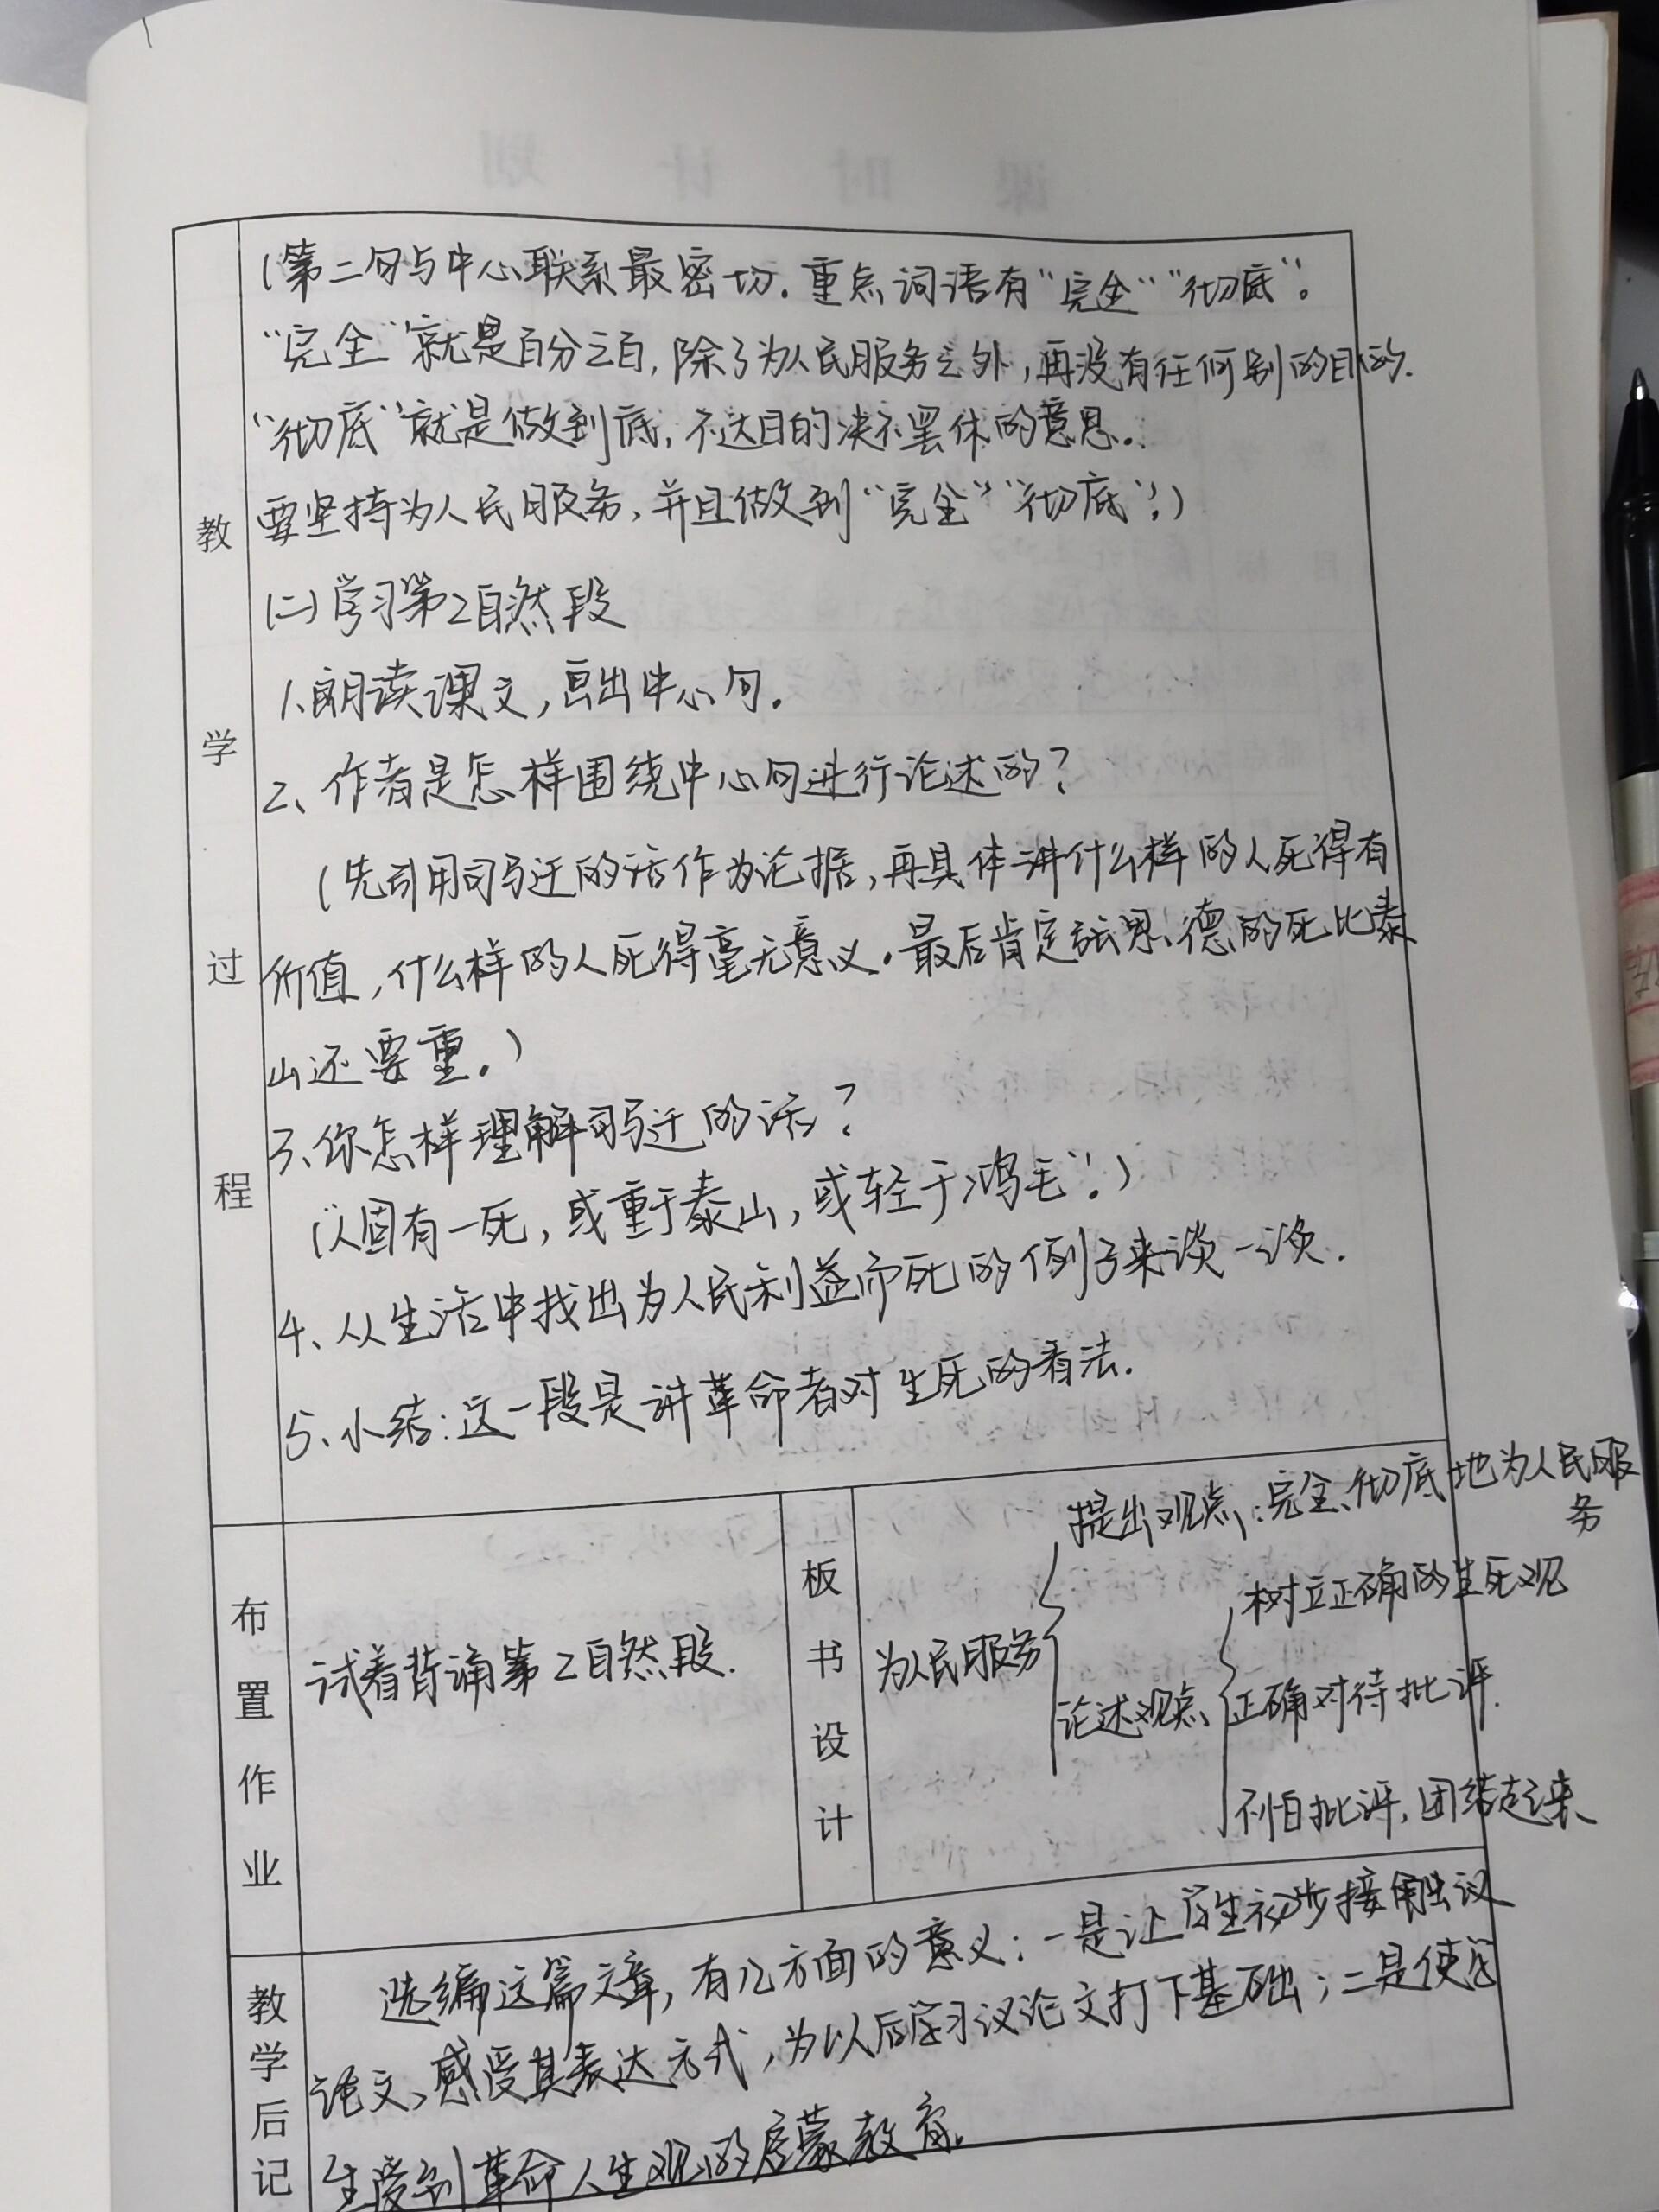 教学过程
(第二句与中心联系最密切.重点词语有“完全”“彻底”。
“完全”就是百分之百,除了为人民服务之外,再没有任何别的目的.
“彻底”就是做到底,不达目的决不罢休的意思.
要坚持为人民服务,并且做到“完全”“彻底”.)
(二)学习第2自然段
1.朗读课文,画出中心句.
2、作者是怎样围绕中心句进行论述的?
(先引用司马迁的话作为论据,再具体讲什么样的人死得有
价值,什么样的人死得毫无意义.最后肯定张思德的死比泰
山还要重.)
3、你怎样理解司马迁的话?
(“人固有一死,或重于泰山,或轻于鸿毛”.)
4、从生活中找出为人民利益而死的例子来谈一谈.
5、小结:这一段是讲革命者对生死的看法.
布置作业
试着背诵第2自然段.
板书设计
为人民服务
提出观点:完全、彻底地为人民服
务
论述观点
树立正确的生死观
正确对待批评.
不怕批评,团结起来
教学后记
选编这篇文章,有几方面的意义:一是让学生初步接触议
论文,感受其表达方式,为以后学习议论文打下基础;二是使学
生受到革命人生观的启蒙教育.
课时计划